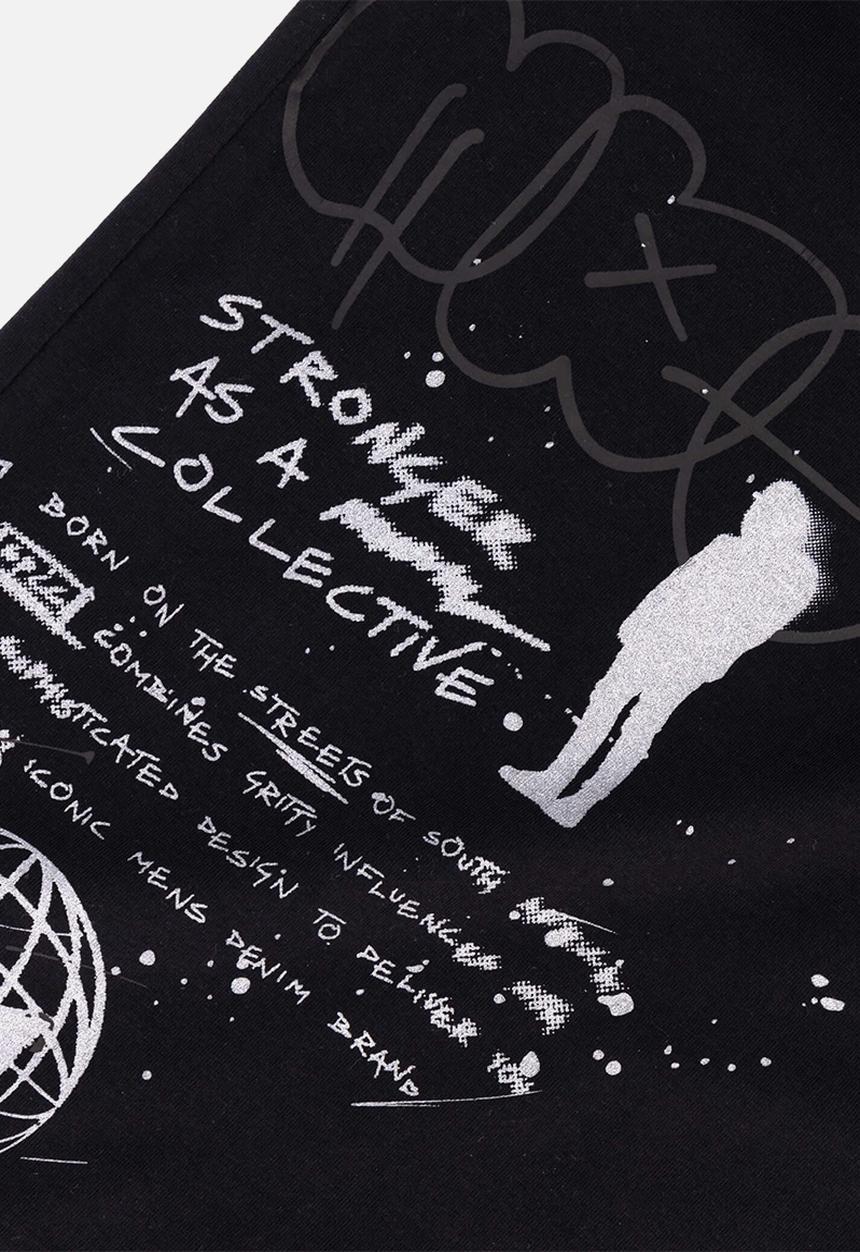 STRONGER
AS A
COLLECTIVE
BORN ON THE STREETS OF SOUTH
COMBINES GRITTY INFLUENCES
DESIGN TO DELIVER
ICONIC MENS DENIM BRAND